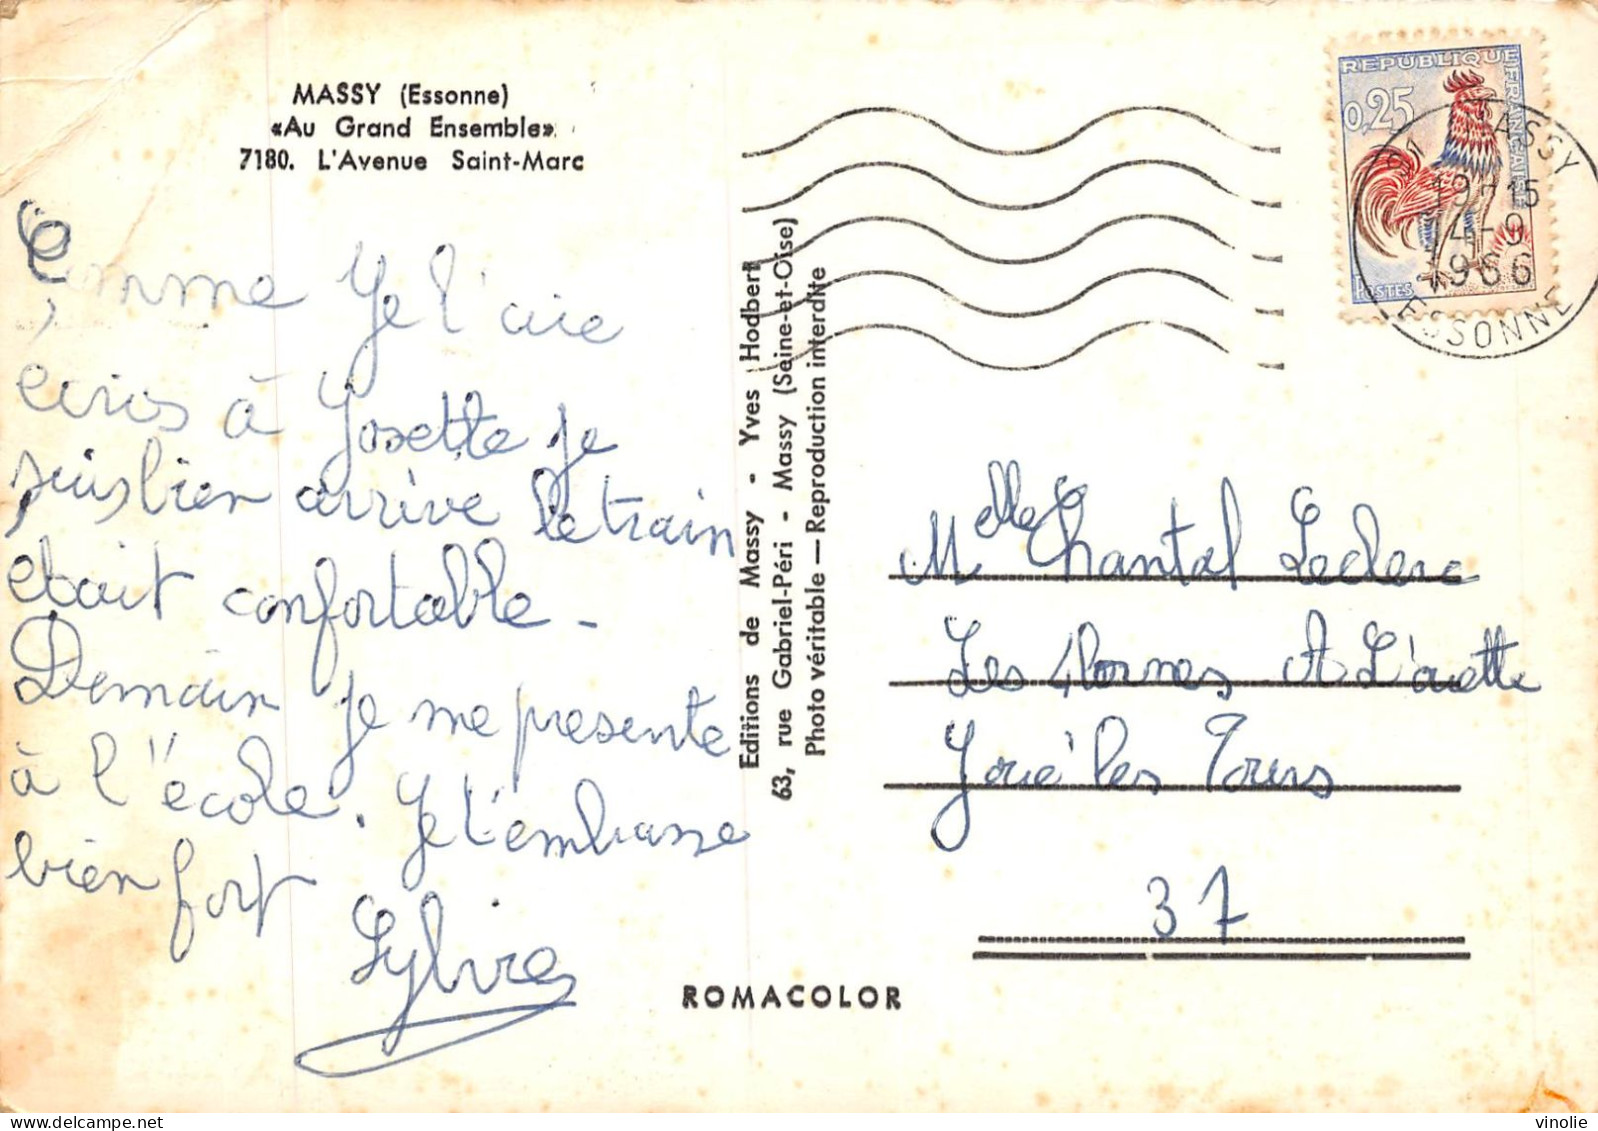 MASSY (Essonne)
«Au Grand Ensemble»
7180. L'Avenue Saint-Marc
Comme Je l'aie
ecris à Josette je
suis bien arrivé le train
etait confortable -
Demain je me presente
à l'école. Je t'embrasse
bien fort
Sylvie
Editions de Massy - Yves Hodbert
63, rue Gabriel-Péri - Massy (Seine-et-Oise)
Photo véritable — Reproduction interdite
REPUBLIQUE FRANÇAISE
0,25
POSTES
91 MASSY
19H15
14-9
1966
ESSONNE
Melle Chantal Leclerc
Les 4 Bornes A L'ouette
Joué les Tours
37
ROMACOLOR
vinolie